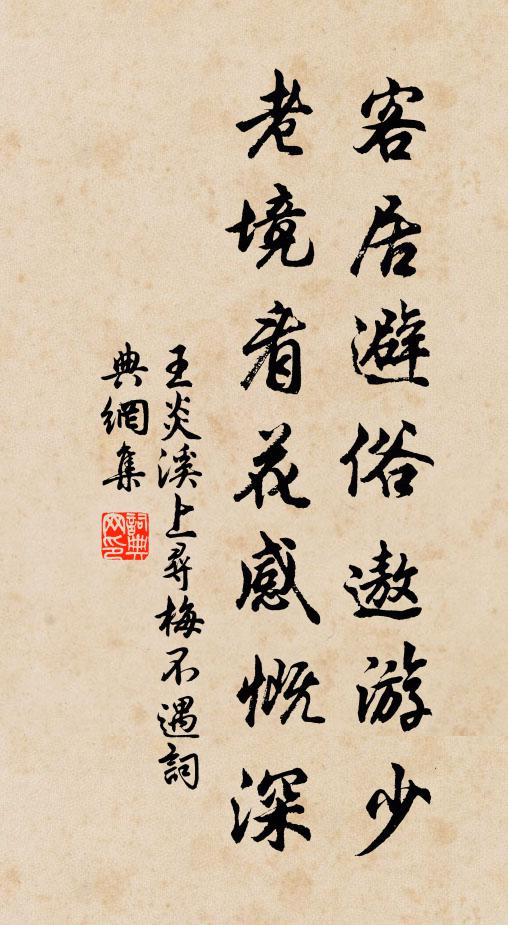 客居避俗遨游少
老境看花感慨深
王炎溪上尋梅不遇詞
典網集
詞典
网印